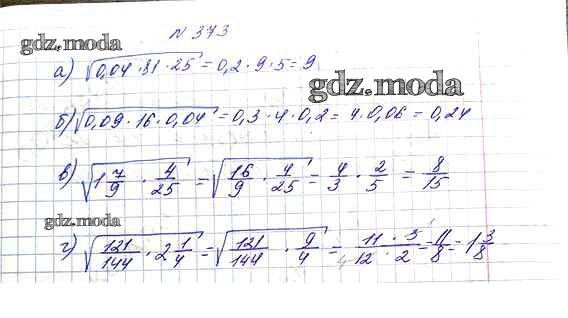 N 373
gdz.moda
а) √(0,04 · 81 · 25) = 0,2 · 9 · 5 = 9
gdz.moda
б) √(0,09 · 16 · 0,04) = 0,3 · 4 · 0,2 = 4 · 0,06 = 0,24
в) √(1 7/9 · 4/25) = √(16/9 · 4/25) = 4/3 · 2/5 = 8/15
gdz.moda
г) √(121/144 · 2 1/4) = √(121/144 · 9/4) = (11 · 3)/(12 · 2) = 11/8 = 1 3/8
gdz.moda